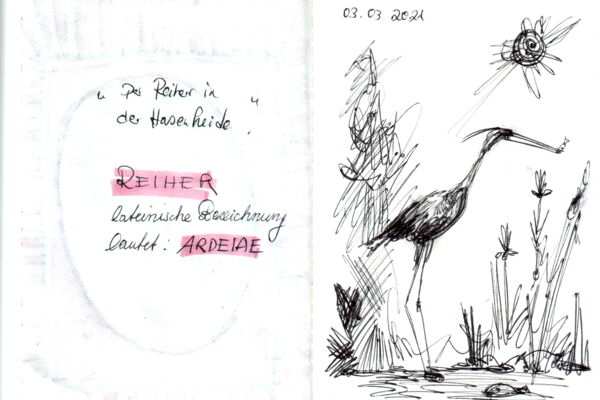 „ Der Reiher in
der Hasenheide. “
REIHER
lateinische Bezeichnung
lautet: ARDEIAE
03.03 2021